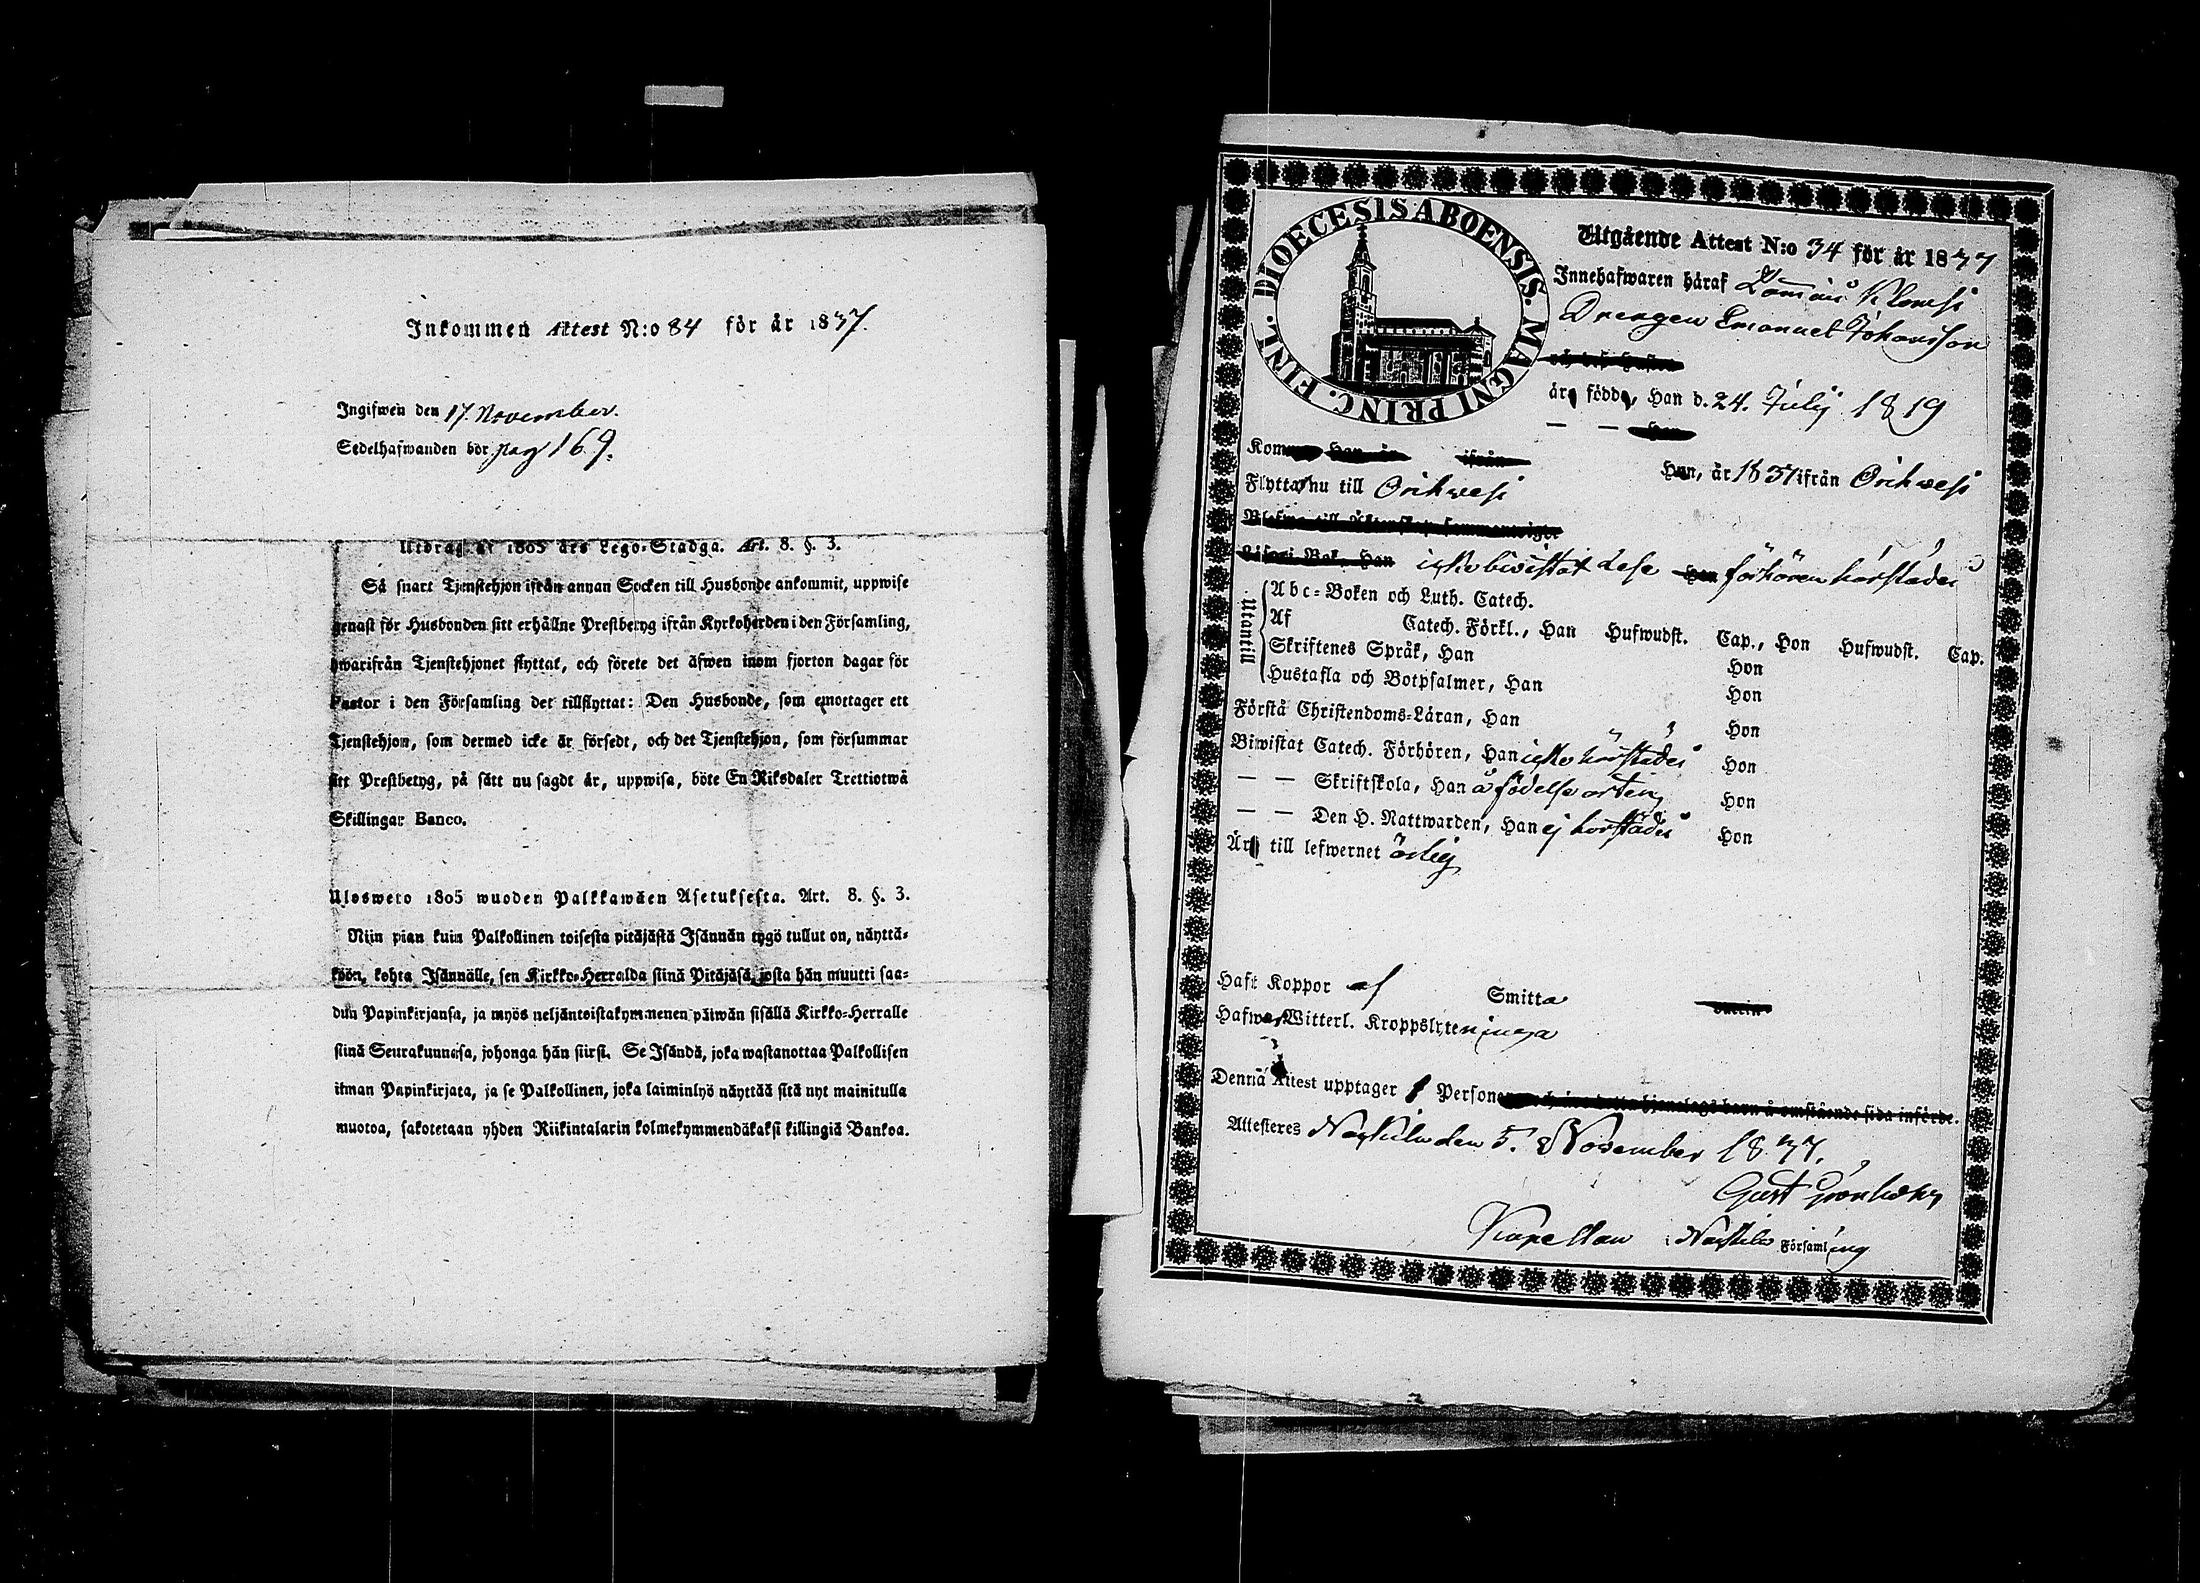 Inkommen Attest N:o 84 för år 1837.
Ingifwen den 17. November.
Sedelhafwanden bor pag 169.
Utdrag af 1805 års Lego-Stadga. Art. 8. §. 3.
Så snart Tjenstehjon ifrån annan Socken till Husbonde ankommit, uppwise
genast för Husbonden sitt erhållne Prestbetyg ifrån Kyrkoherden i den Församling,
hwarifrån Tjenstehjonet flyttat, och förete det äfwen inom fjorton dagar för
Pastor i den Församling det tillflyttat: Den Husbonde, som emottager ett
Tjenstehjon, som dermed icke är försedt, och det Tjenstehjon, som försummar
sitt Prestbetyg, på sätt nu sagdt är, uppwisa, böte En Riksdaler Trettiotwå
Skillingar Banco.
Ulosweto 1805 wuoden Palkkawäen Asetuksesta. Art. 8. §. 3.
Niin pian kuin Palkollinen toisesta pitäjästä Isännän tygö tullut on, näyttä-
köön, kohta Isännälle, sen Kirkko-Herralda siinä Pitäjäsä, josta hän muutti saa-
dun Papinkirjansa, ja myös neljäntoistakymmenen päiwän sisällä Kirkko-Herralle
siinä Seurakunnasa, johonga hän siirsi. Se Isändä, joka wastanottaa Palkollisen
ilman Papinkirjata, ja se Palkollinen, joka laiminlyö näyttää sitä nyt mainitulla
muotoa, sakotetaan yhden Riikintalarin kolmekymmendäkaksi killingiä Bankoa.
DIOECESIS ABOENSIS. MAGNI PRINC. FINL.
Utgående Attest N:o 34 för år 1837
Innehafwaren häraf
Drengen Emanuel Johansson
är född, Han d. 24. Julij 1819
— — Hon
Kom Han år ifrån
Hon, år 1837 ifrån Orihwesi
Flyttar nu till Orihwesi
Han icke biwistat Läse förhören härstädes
Utantill
Abc-Boken och Luth. Catech.
Af Catech. Förkl., Han Hufwudst. Cap., Hon Hufwudst. Cap.
Skriftenes Språk, Han Hon
Hustafla och Botpsalmer, Han Hon
Förstå Christendoms-Läran, Han Hon
Biwistat Catech. Förhören, Han icke härstädes Hon
— — Skriftskola, Han å födelse orten Hon
— — Den H. Nattwarden, Han ej härstädes Hon
Är till lefwernet ärlig
Haft Koppor af Smitta
Hafwa Witterl. Kroppslyten inga
Denna Attest upptager 1 Person och i så detta hjonelags barn å omstående sida införde.
Attesteres den 5. November 1837.
Gust Grönholm
Kapellan i Församling